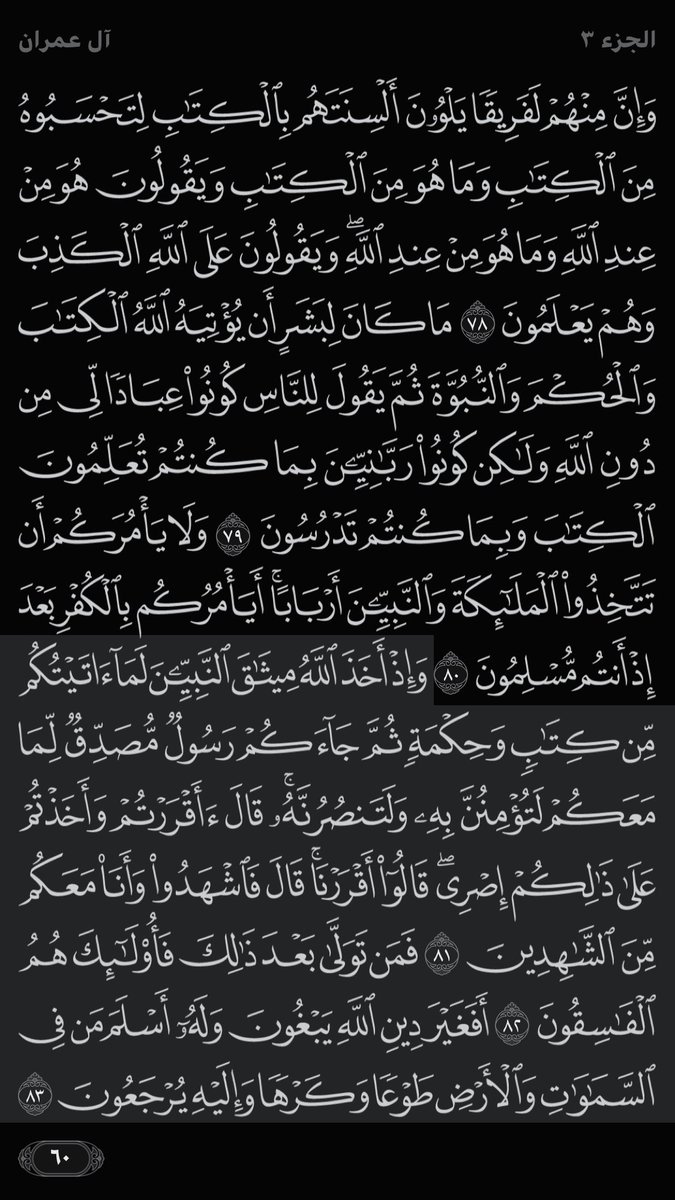 الجزء ٣
آل عمران
وَإِنَّ مِنْهُمْ لَفَرِيقًا يَلْوُۥنَ أَلْسِنَتَهُم بِٱلْكِتَٰبِ لِتَحْسَبُوهُ
مِنَ ٱلْكِتَٰبِ وَمَا هُوَ مِنَ ٱلْكِتَٰبِ وَيَقُولُونَ هُوَ مِنْ
عِندِ ٱللَّهِ وَمَا هُوَ مِنْ عِندِ ٱللَّهِۖ وَيَقُولُونَ عَلَى ٱللَّهِ ٱلْكَذِبَ
وَهُمْ يَعْلَمُونَ ٧٨ مَا كَانَ لِبَشَرٍ أَن يُؤْتِيَهُ ٱللَّهُ ٱلْكِتَٰبَ
وَٱلْحُكْمَ وَٱلنُّبُوَّةَ ثُمَّ يَقُولَ لِلنَّاسِ كُونُوا۟ عِبَادًا لِّى مِن
دُونِ ٱللَّهِ وَلَٰكِن كُونُوا۟ رَبَّٰنِيِّۦنَ بِمَا كُنتُمْ تُعَلِّمُونَ
ٱلْكِتَٰبَ وَبِمَا كُنتُمْ تَدْرُسُونَ ٧٩ وَلَا يَأْمُرَكُمْ أَن
تَتَّخِذُوا۟ ٱلْمَلَٰٓئِكَةَ وَٱلنَّبِيِّۦنَ أَرْبَابًاۗ أَيَأْمُرُكُم بِٱلْكُفْرِ بَعْدَ
إِذْ أَنتُم مُّسْلِمُونَ ٨٠ وَإِذْ أَخَذَ ٱللَّهُ مِيثَٰقَ ٱلنَّبِيِّۦنَ لَمَآ ءَاتَيْتُكُم
مِّن كِتَٰبٍ وَحِكْمَةٍ ثُمَّ جَآءَكُمْ رَسُولٌ مُّصَدِّقٌ لِّمَا
مَعَكُمْ لَتُؤْمِنُنَّ بِهِۦ وَلَتَنصُرُنَّهُۥۚ قَالَ ءَأَقْرَرْتُمْ وَأَخَذْتُمْ
عَلَىٰ ذَٰلِكُمْ إِصْرِىۖ قَالُوٓا۟ أَقْرَرْنَاۚ قَالَ فَٱشْهَدُوا۟ وَأَنَا۠ مَعَكُم
مِّنَ ٱلشَّٰهِدِينَ ٨١ فَمَن تَوَلَّىٰ بَعْدَ ذَٰلِكَ فَأُو۟لَٰٓئِكَ هُمُ
ٱلْفَٰسِقُونَ ٨٢ أَفَغَيْرَ دِينِ ٱللَّهِ يَبْغُونَ وَلَهُۥٓ أَسْلَمَ مَن فِى
ٱلسَّمَٰوَٰتِ وَٱلْأَرْضِ طَوْعًا وَكَرْهًا وَإِلَيْهِ يُرْجَعُونَ ٨٣
٦٠